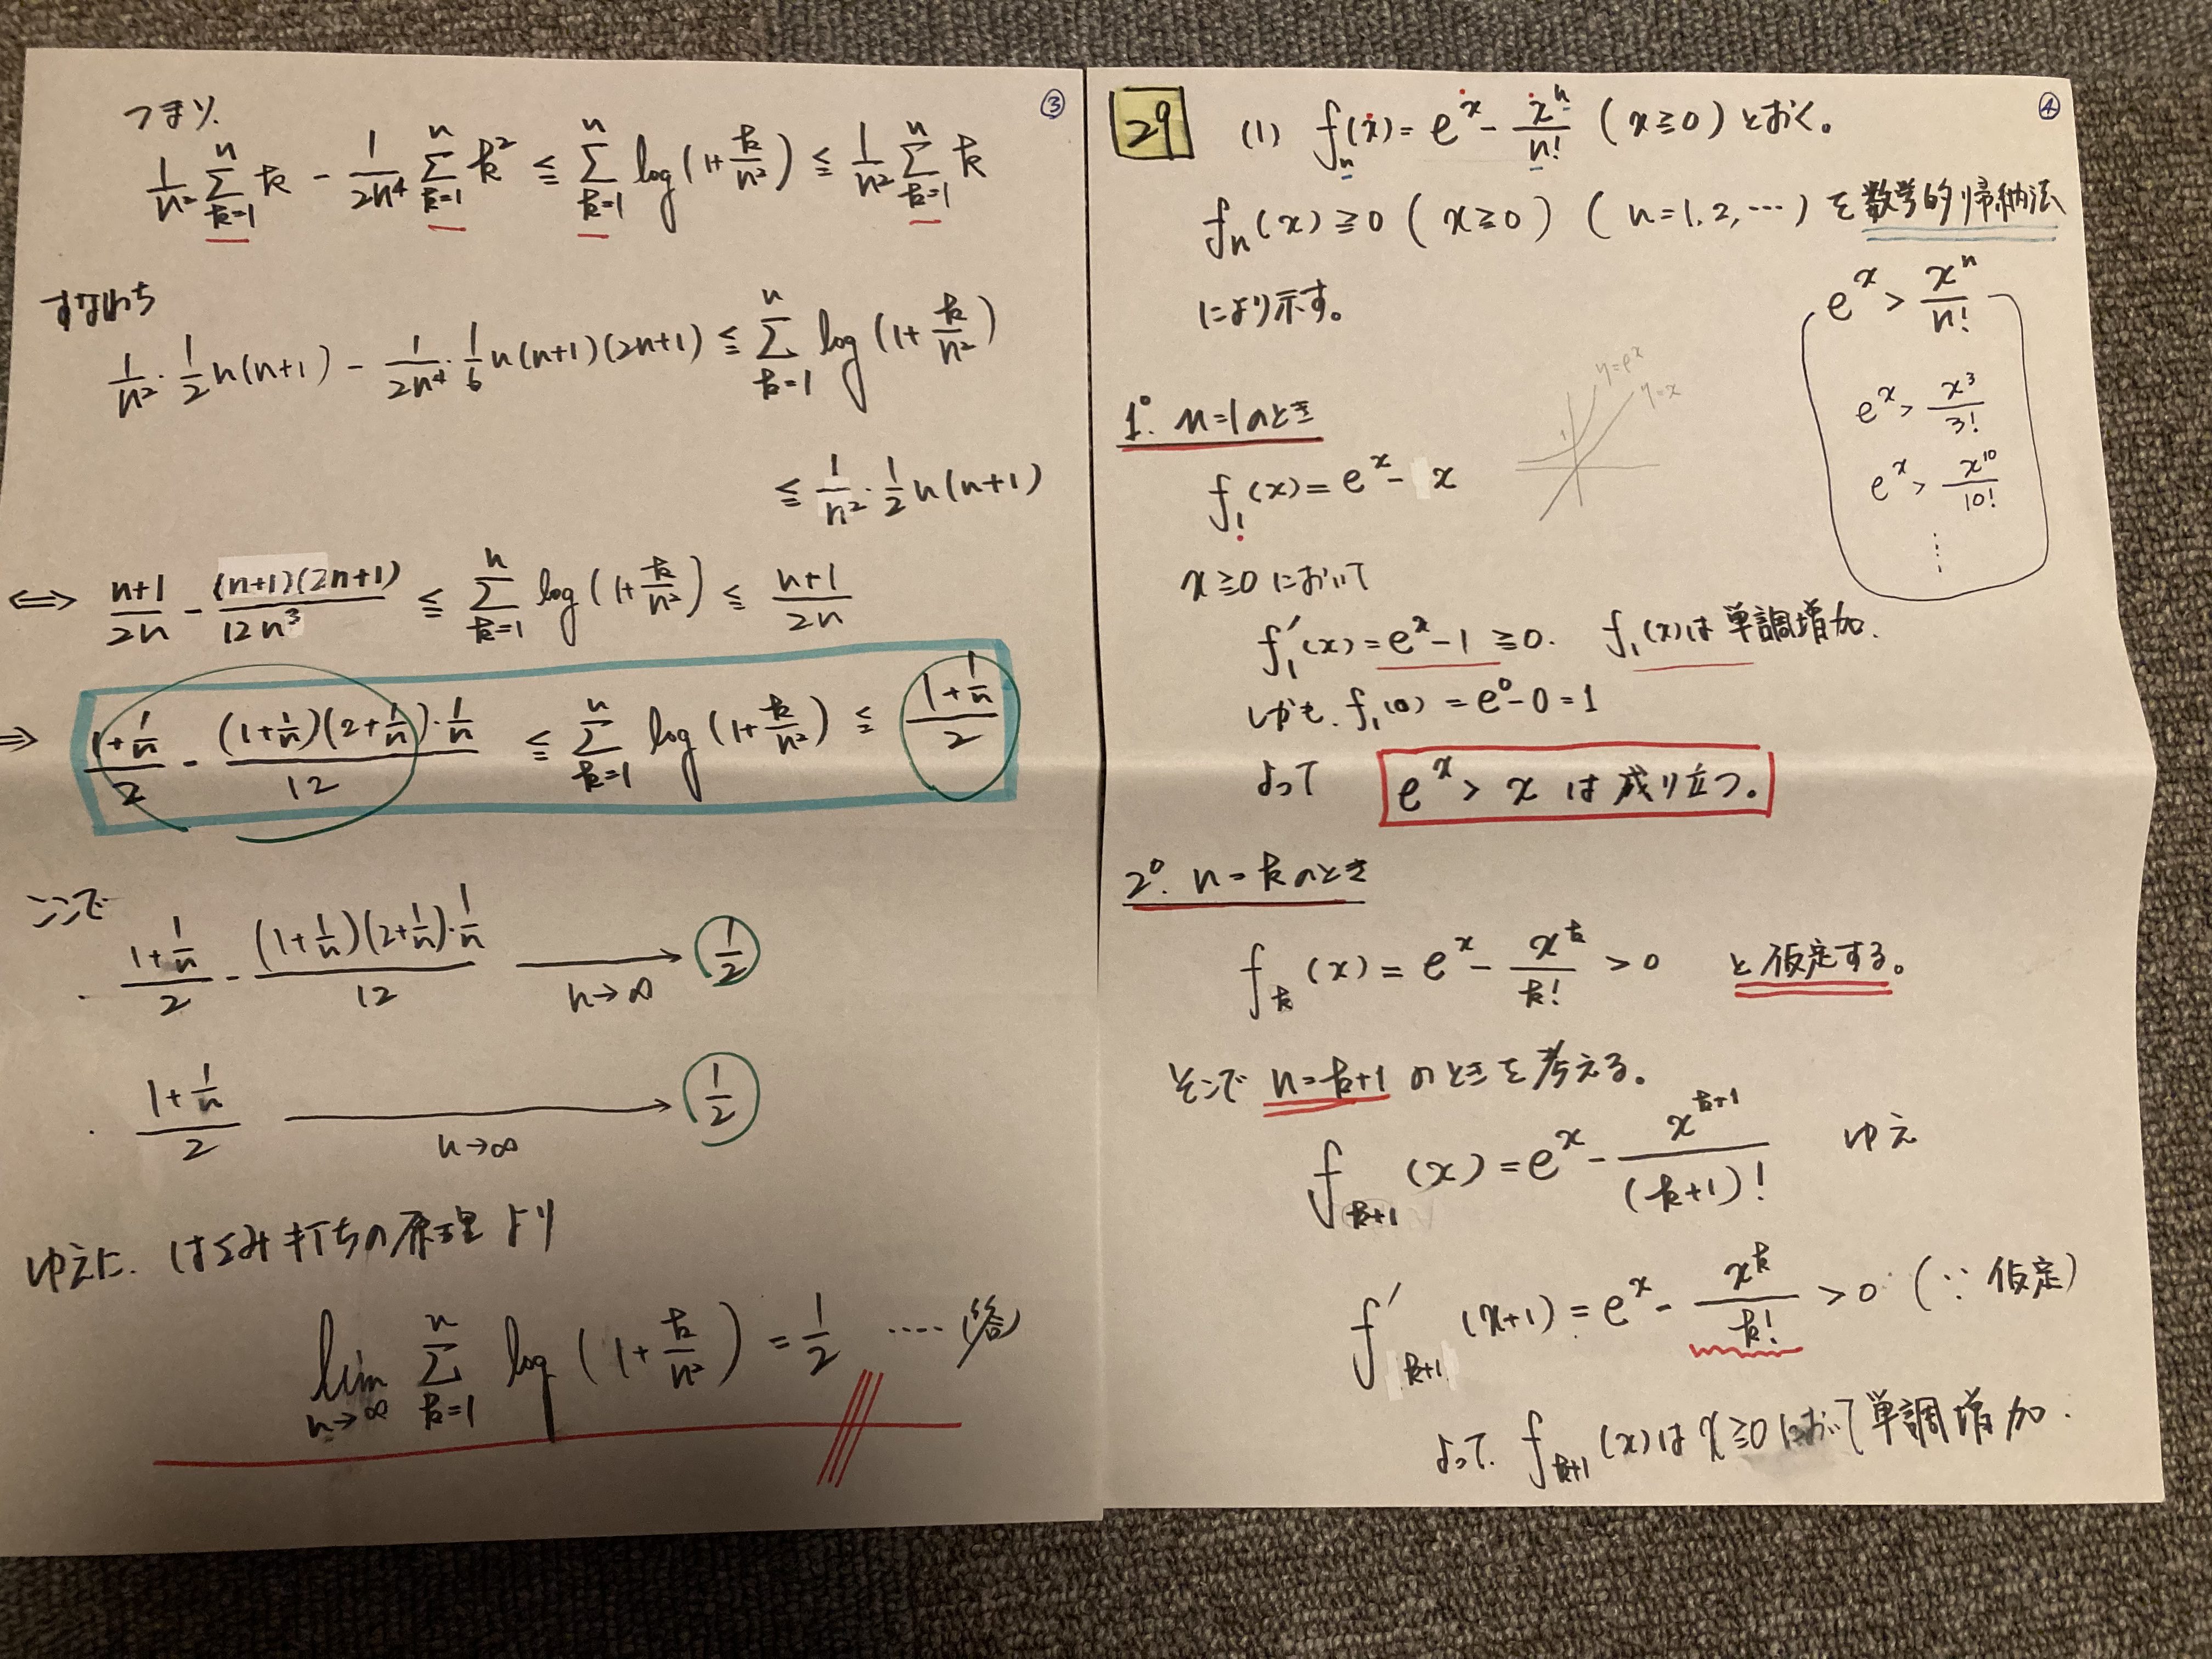 ③
つまり、
1/n² Σ[k=1→n] k − 1/(2n⁴) Σ[k=1→n] k² ≦ Σ[k=1→n] log(1+k/n²) ≦ 1/n² Σ[k=1→n] k
すなわち
1/n²・1/2 n(n+1) − 1/(2n⁴)・1/6 n(n+1)(2n+1) ≦ Σ[k=1→n] log(1+k/n²)
≦ 1/n²・1/2 n(n+1)
⟺ (n+1)/(2n) − (n+1)(2n+1)/(12n³) ≦ Σ[k=1→n] log(1+k/n²) ≦ (n+1)/(2n)
⇒ (1+1/n)/2 − (1+1/n)(2+1/n)・1/n/12 ≦ Σ[k=1→n] log(1+k/n²) ≦ (1+1/n)/2
ここで
・(1+1/n)/2 − (1+1/n)(2+1/n)・1/n/12 ⟶ (n→∞) 1/2
・(1+1/n)/2 ⟶ (n→∞) 1/2
ゆえに、はさみ打ちの原理より
lim[n→∞] Σ[k=1→n] log(1+k/n²) = 1/2 ‥‥(答)
④
29 (1) fₙ(x) = eˣ − xⁿ/n! (x≧0) とおく。
fₙ(x)≧0 (x≧0) (n=1,2,…) を数学的帰納法
により示す。
eˣ > xⁿ/n!
eˣ > x³/3!
eˣ > x¹⁰/10!
⋮
1°. n=1のとき
y=eˣ
y=x
1
f₁(x) = eˣ − x
x≧0において
f₁′(x) = eˣ−1 ≧0. f₁(x)は単調増加.
しかも、f₁(0) = e⁰−0=1
よって eˣ > x は成り立つ。
2°. n=kのとき
f_k(x) = eˣ − x^k/k! > 0 と仮定する。
そこで n=k+1 のときを考える。
f_{k+1}(x) = eˣ − x^{k+1}/(k+1)! ゆえ
f′_{k+1}(x+1) = eˣ − x^k/k! > 0 (∵ 仮定)
よって、f_{k+1}(x)は x≧0において単調増加.